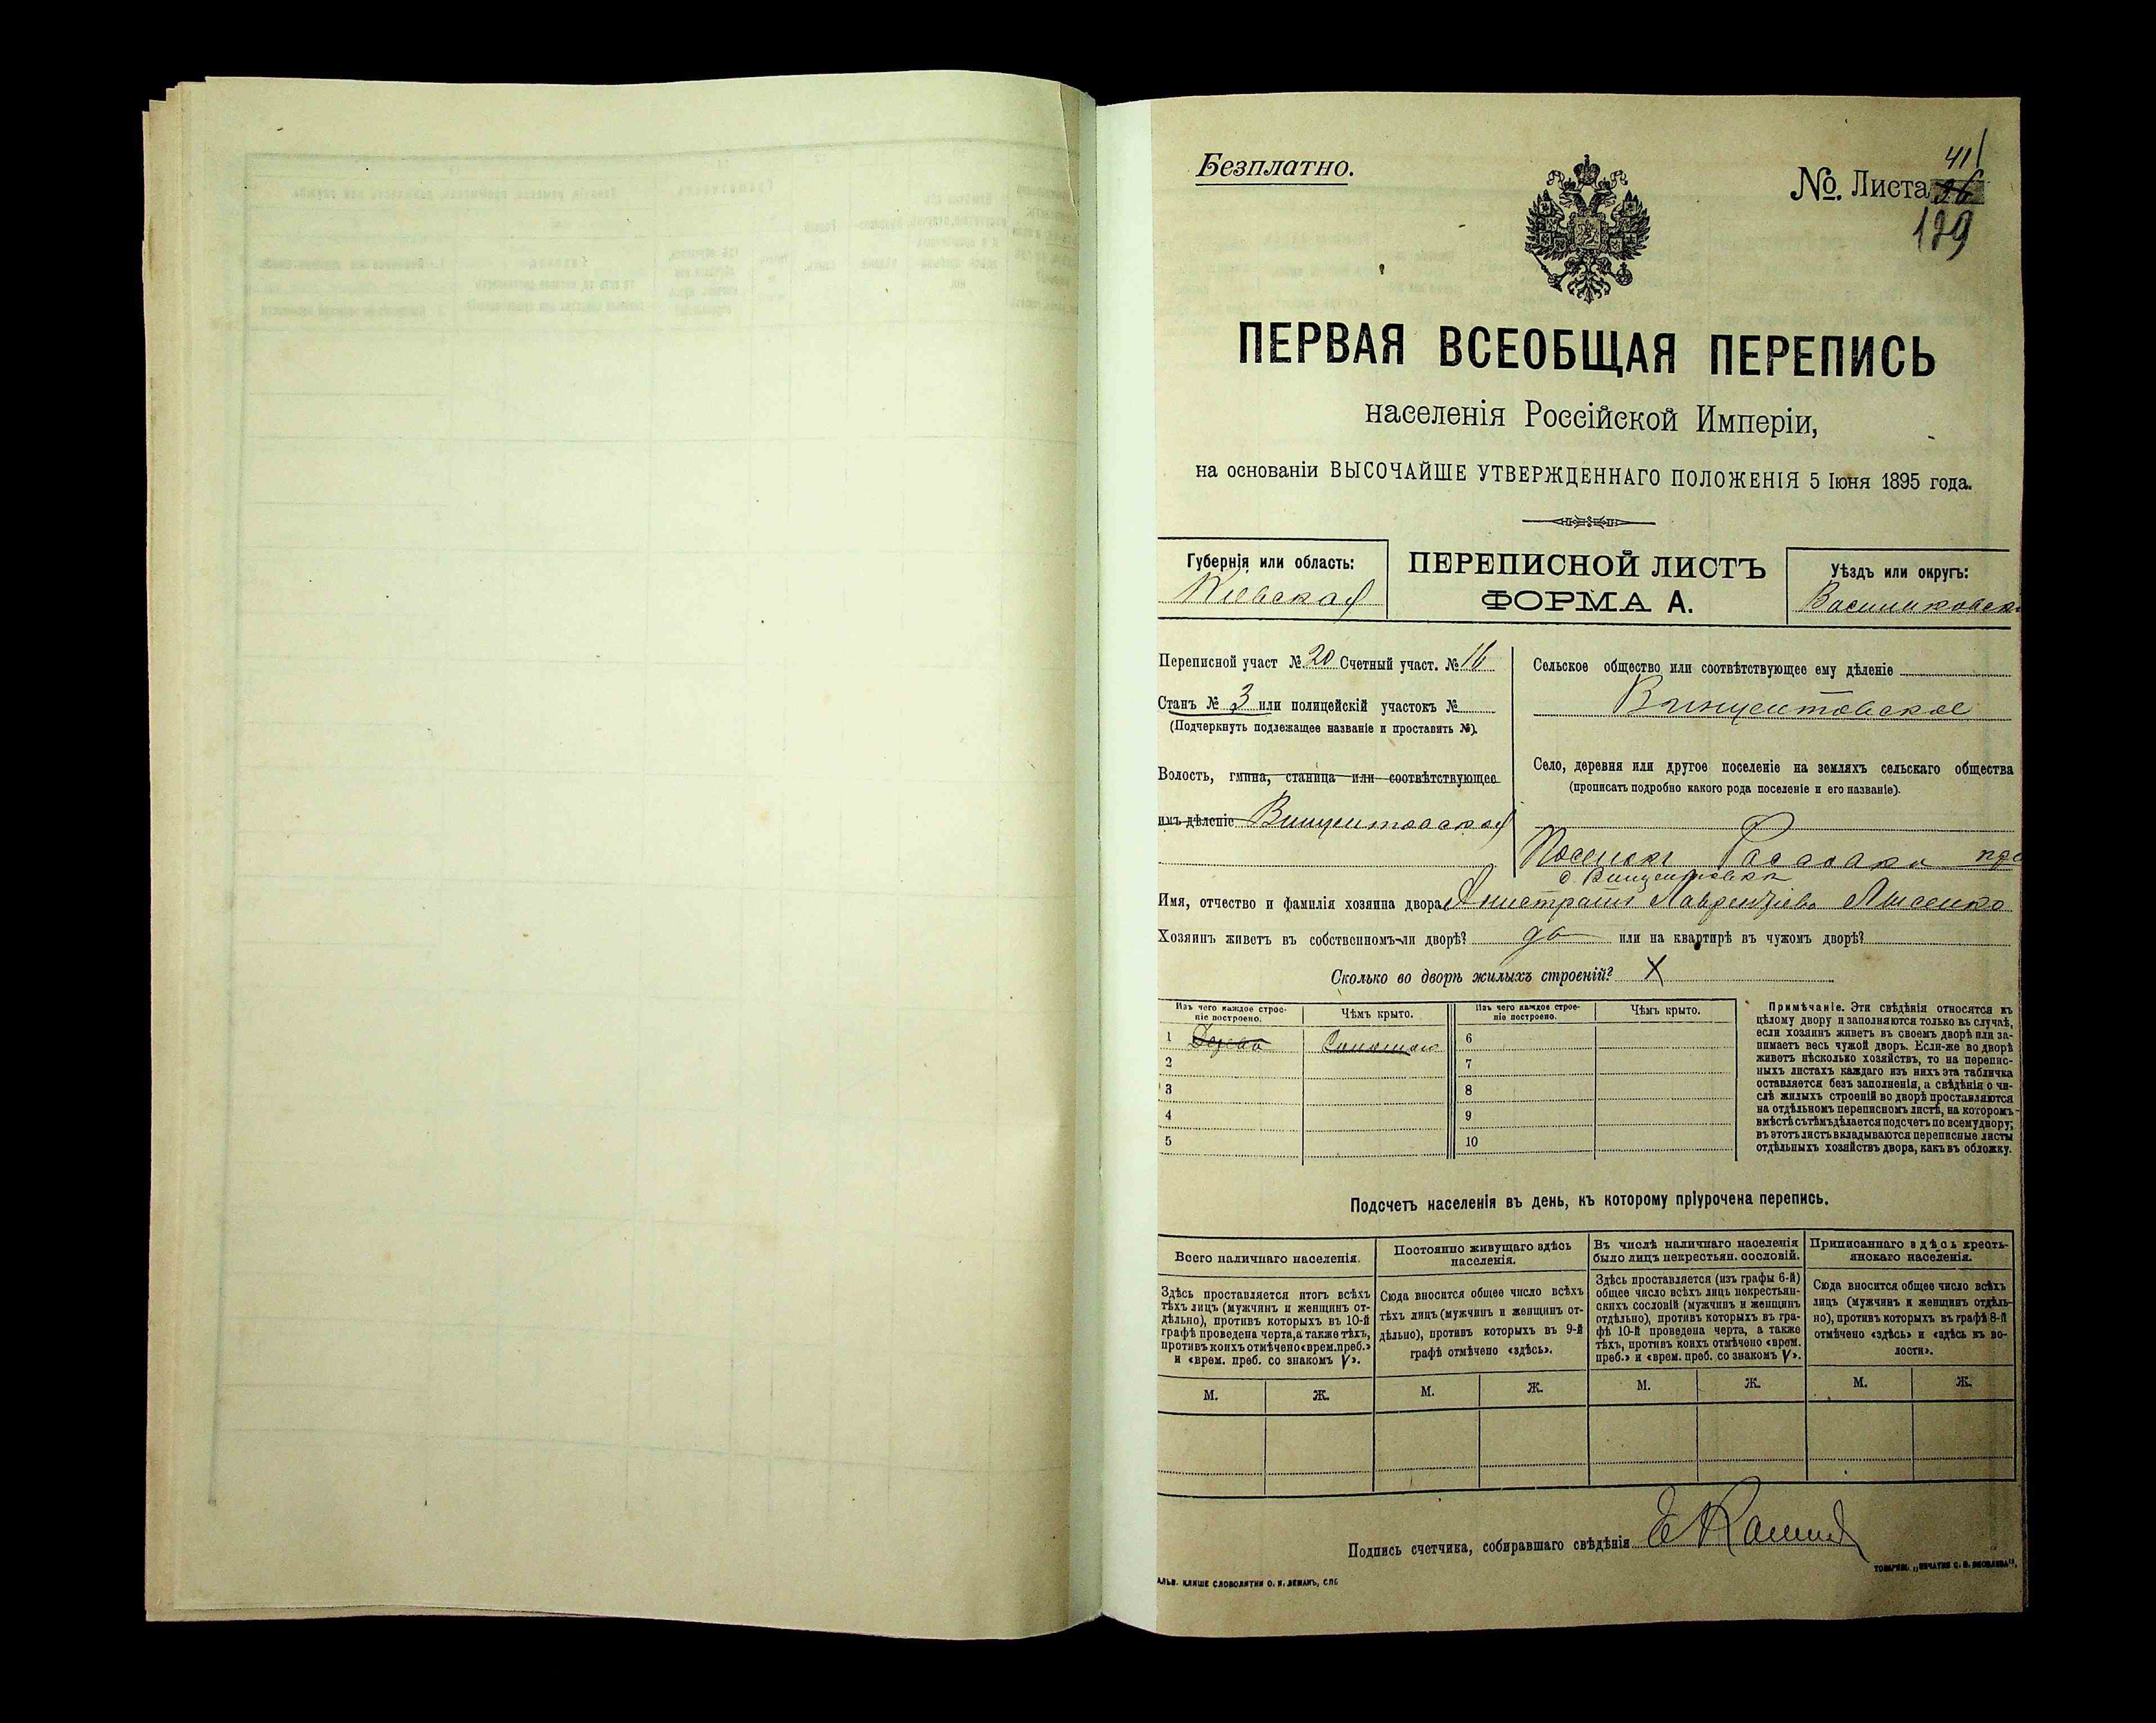 Безплатно.
41
№. Листа
199
ПЕРВАЯ ВСЕОБЩАЯ ПЕРЕПИСЬ
населенія Россійской Имперіи,
на основаніи ВЫСОЧАЙШЕ УТВЕРЖДЕННАГО ПОЛОЖЕНІЯ 5 Іюня 1895 года.
Губернія или область:
Кіевская
ПЕРЕПИСНОЙ ЛИСТЪ
ФОРМА А.
Уѣздъ или округъ:
Васильковск
Переписной участ № 20 Счетный участ. № 16
Станъ № 3 или полицейскій участокъ №
(Подчеркнуть подлежащее названіе и проставить №).
Волость, гмина, станица или соотвѣтствующее
имъ дѣленіе Винцентовская
Сельское общество или соотвѣтствующее ему дѣленіе
Винцентовское
Село, деревня или другое поселеніе на земляхъ сельскаго общества
(прописать подробно какого рода поселеніе и его названіе).
Поселокъ при
д. Винцентовкѣ
Имя, отчество и фамилія хозяина двора Лаврентіевъ Лысенко
Хозяинъ живетъ въ собственномъ-ли дворѣ? да или на квартирѣ въ чужомъ дворѣ?
Сколько во дворѣ жилыхъ строеній? X
Изъ чего каждое строе-
ніе построено.
Чѣмъ крыто.
Изъ чего каждое строе-
ніе построено.
Чѣмъ крыто.
1 Дерева Соломою 6
2 7
3 8
4 9
5 10
Примѣчаніе. Эти свѣдѣнія относятся къ
цѣлому двору и заполняются только въ случаѣ,
если хозяинъ живетъ въ своемъ дворѣ или за-
нимаетъ весь чужой дворъ. Если-же во дворѣ
живетъ нѣсколько хозяйствъ, то на перепис-
ныхъ листахъ каждаго изъ нихъ эта табличка
оставляется безъ заполненія, а свѣдѣнія о чи-
слѣ жилыхъ строеній во дворѣ проставляются
на отдѣльномъ переписномъ листѣ, на которомъ-
вмѣстѣ съ тѣмъ дѣлается подсчетъ по всему двору;
въ этотъ листъ вкладываются переписные листы
отдѣльныхъ хозяйствъ двора, какъ въ обложку.
Подсчетъ населенія въ день, къ которому пріурочена перепись.
Всего наличнаго населенія.
Здѣсь проставляется итогъ всѣхъ
тѣхъ лицъ (мужчинъ и женщинъ от-
дѣльно), противъ которыхъ въ 10-й
графѣ проведена черта, а также тѣхъ,
противъ коихъ отмѣчено «врем. преб.»
и «врем. преб. со знакомъ V».
Постоянно живущаго здѣсь
населенія.
Сюда вносится общее число всѣхъ
тѣхъ лицъ (мужчинъ и женщинъ от-
дѣльно), противъ которыхъ въ 9-й
графѣ отмѣчено «здѣсь».
Въ числѣ наличнаго населенія
было лицъ некрестьян. сословій.
Здѣсь проставляется (изъ графы 6-й)
общее число всѣхъ лицъ некрестьян-
скихъ сословій (мужчинъ и женщинъ
отдѣльно), противъ которыхъ въ гра-
фѣ 10-й проведена черта, а также
тѣхъ, противъ коихъ отмѣчено «врем.
преб.» и «врем. преб. со знакомъ V».
Приписаннаго здѣсь кресть-
янскаго населенія.
Сюда вносится общее число всѣхъ
лицъ (мужчинъ и женщинъ отдѣль-
но), противъ которыхъ въ графѣ 8-й
отмѣчено «здѣсь» и «здѣсь въ во-
лости».
М. Ж. М. Ж. М. Ж. М. Ж.
Подпись счетчика, собиравшаго свѣдѣнія
АЛЬВ. КЛИШЕ СЛОВОЛИТНИ О. И. ЛЕМАНЪ, СПБ
ТОВАРИЩ. „ПЕЧАТНЯ С. П. ЯКОВЛЕВА“,